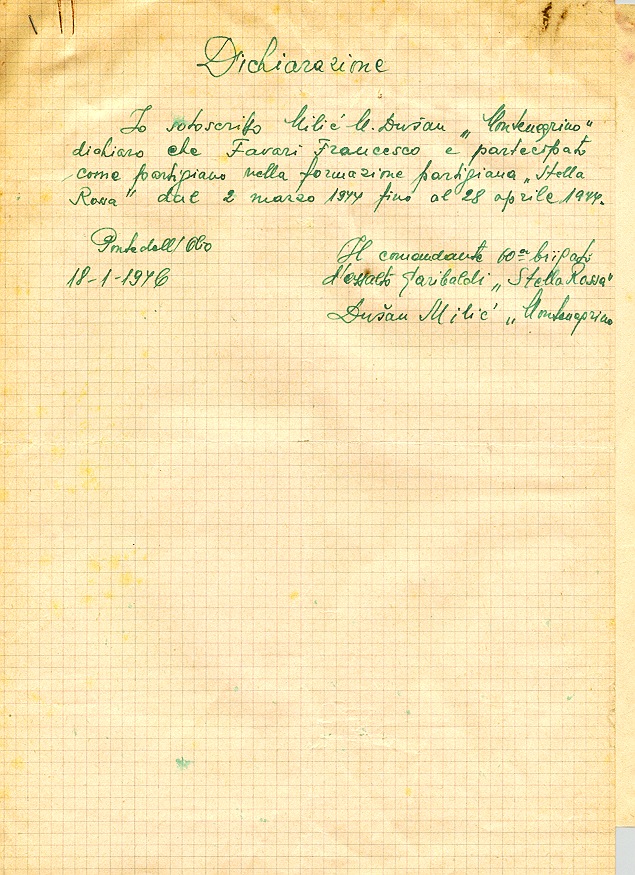 Dichiarazione
Io sotoscrito Milić M. Dušan „Montenegrino"
dichiaro che Favari Francesco e partecipato
come partigiano nella formazione partigiana „Stella
Rossa" dal 2 marzo 1944 fino al 28 aprile 1944.
Pontedell'Olio
18-1-1946
Il comandante 60ª brigata
d'assalto Garibaldi „Stella Rossa"
Dušan Milić „Montenegrino